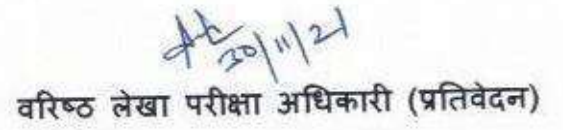 30/11/21
वरिष्ठ लेखा परीक्षा अधिकारी (प्रतिवेदन)